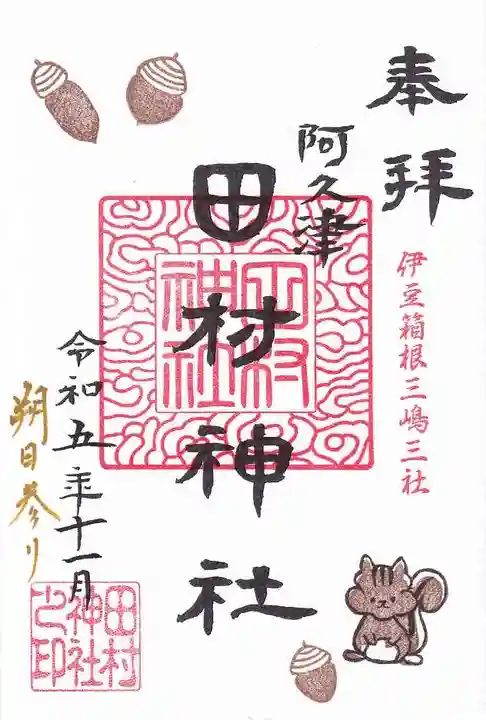 奉拝
伊豆箱根三嶋三社
阿久津
田村神社
田村神社
令和五年十一月
朔日参り
田村
神社
之印